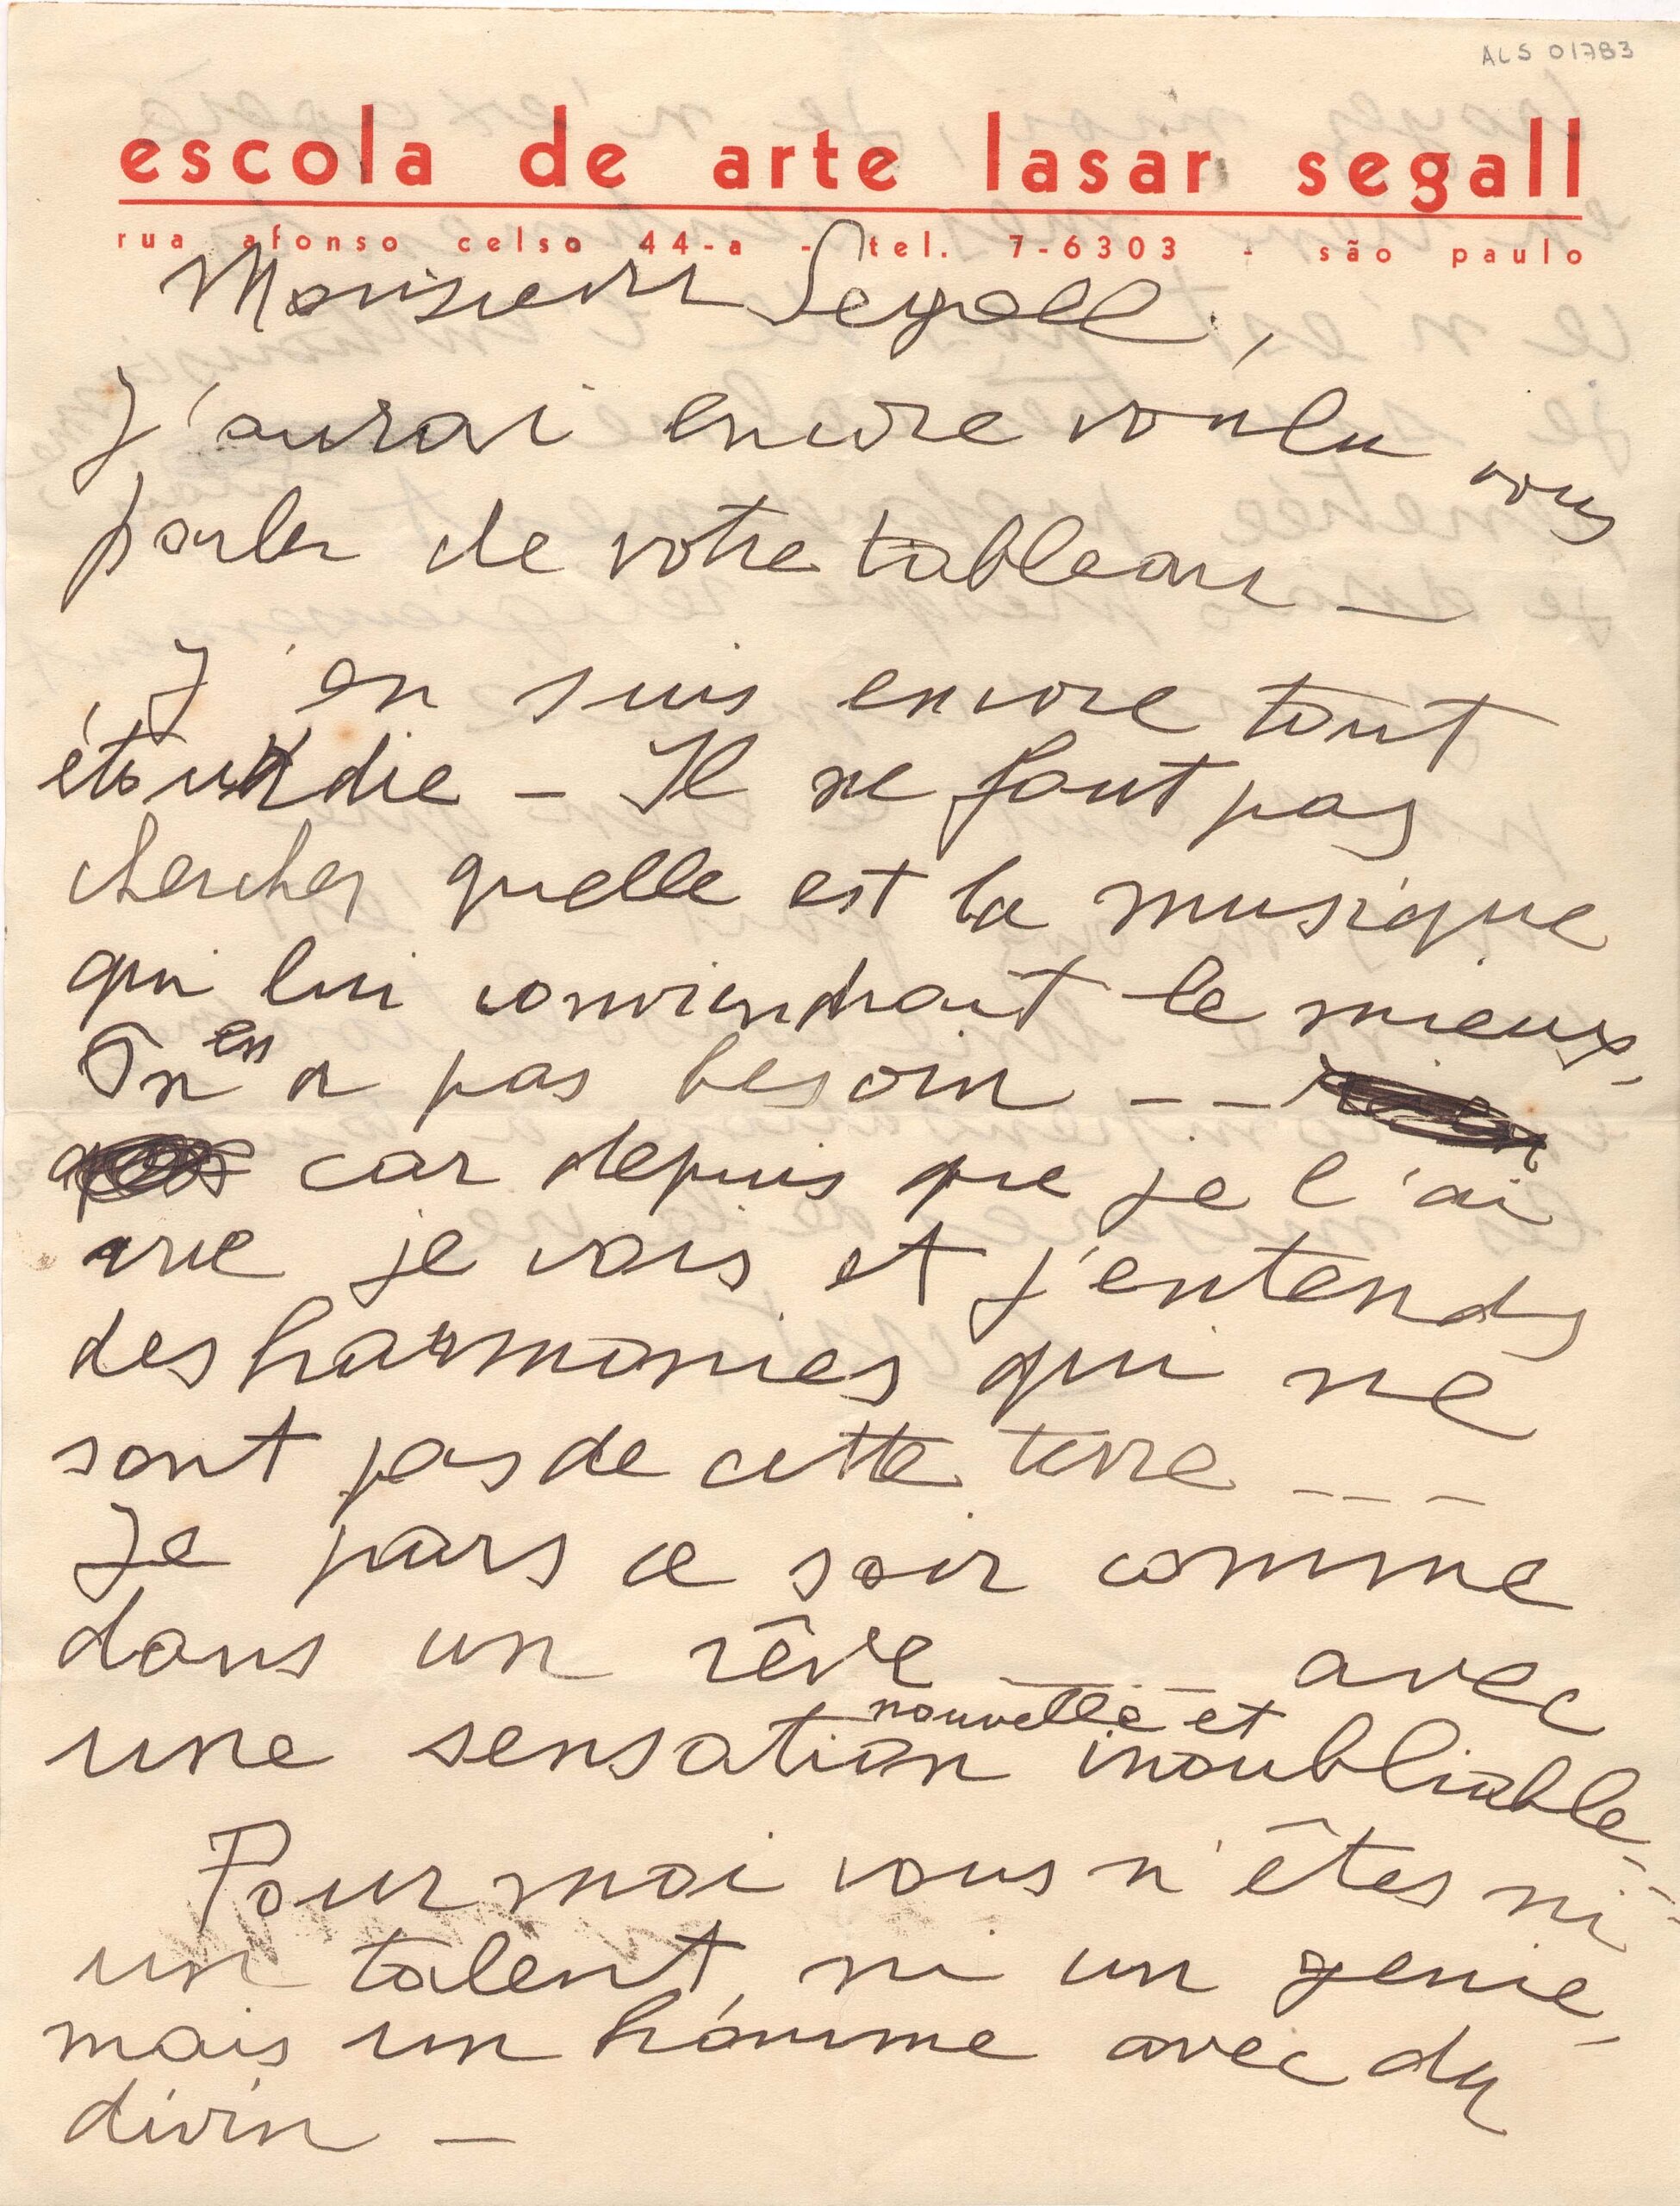 ALS 01783
escola de arte lasar segall
rua afonso celso 44-a - tel. 7-6303 - são paulo
Monsieur Segall,
J'aurai encore voulu vous
parler de votre tableau —
J'en suis encore tout
étourdie — Il ne faut pas
chercher quelle est la musique
qui lui conviendrait le mieux -
On en a pas besoin - -
car depuis que je l'ai
vue je vois et j'entends
des harmonies qui ne
sont pas de cette terre - - -
Je pars ce soir comme
dans un rêve — - avec
une sensation nouvelle et inoubliable - -
Pour moi vous n'êtes ni
un talent, ni un genie -
mais un homme avec du
divin —